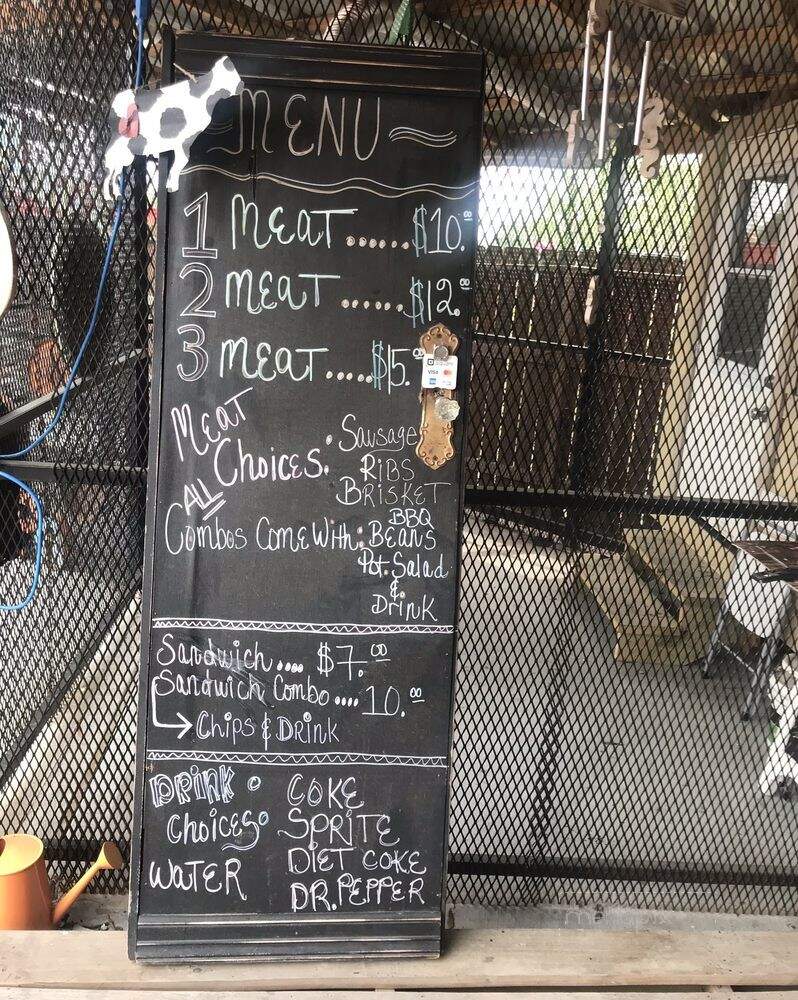 MENU
1 MEAT......$10.00
2 MEAT ......$12.00
3 MEAT....$15.0
VISA
MEAT Choices: Sausage
RIBS
BRISKET
ALL Combos Come With: BBQ Beans
Pot. Salad
&
Drink
Sandwich .... $7.00
Sandwich Combo .... 10.00
→ Chips & Drink
DRINK Choices: COKE
SPRITE
DIET COKE
WATER
DR. PEPPER